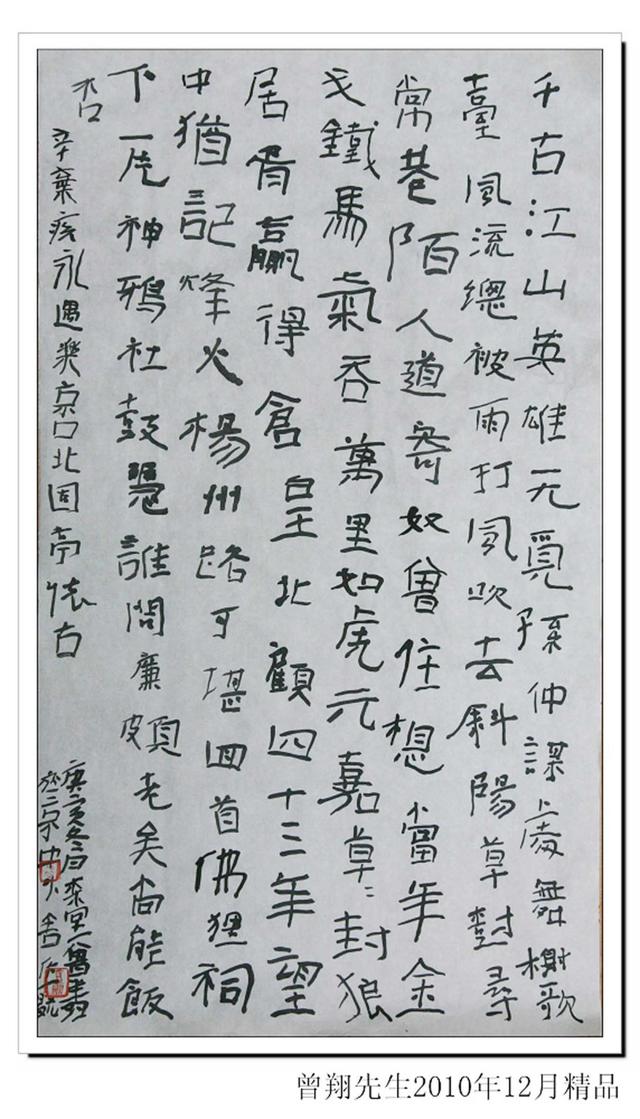 千古江山英雄无覓孫仲謀處舞榭歌
臺風流總被雨打風吹去斜陽草對尋
常巷陌人道寄奴曾住想當年金
戈鐵馬氣吞萬里如虎元嘉草〻封狼
居胥贏得倉皇北顧四十三年望
中猶記烽火楊州路可堪回首佛狸祠
下一片神鴉社鼓憑誰問廉頗老矣尚能飯
否
辛棄疾永遇樂京口北固亭懷古
庚寅冬日
曾翔先生2010年12月精品